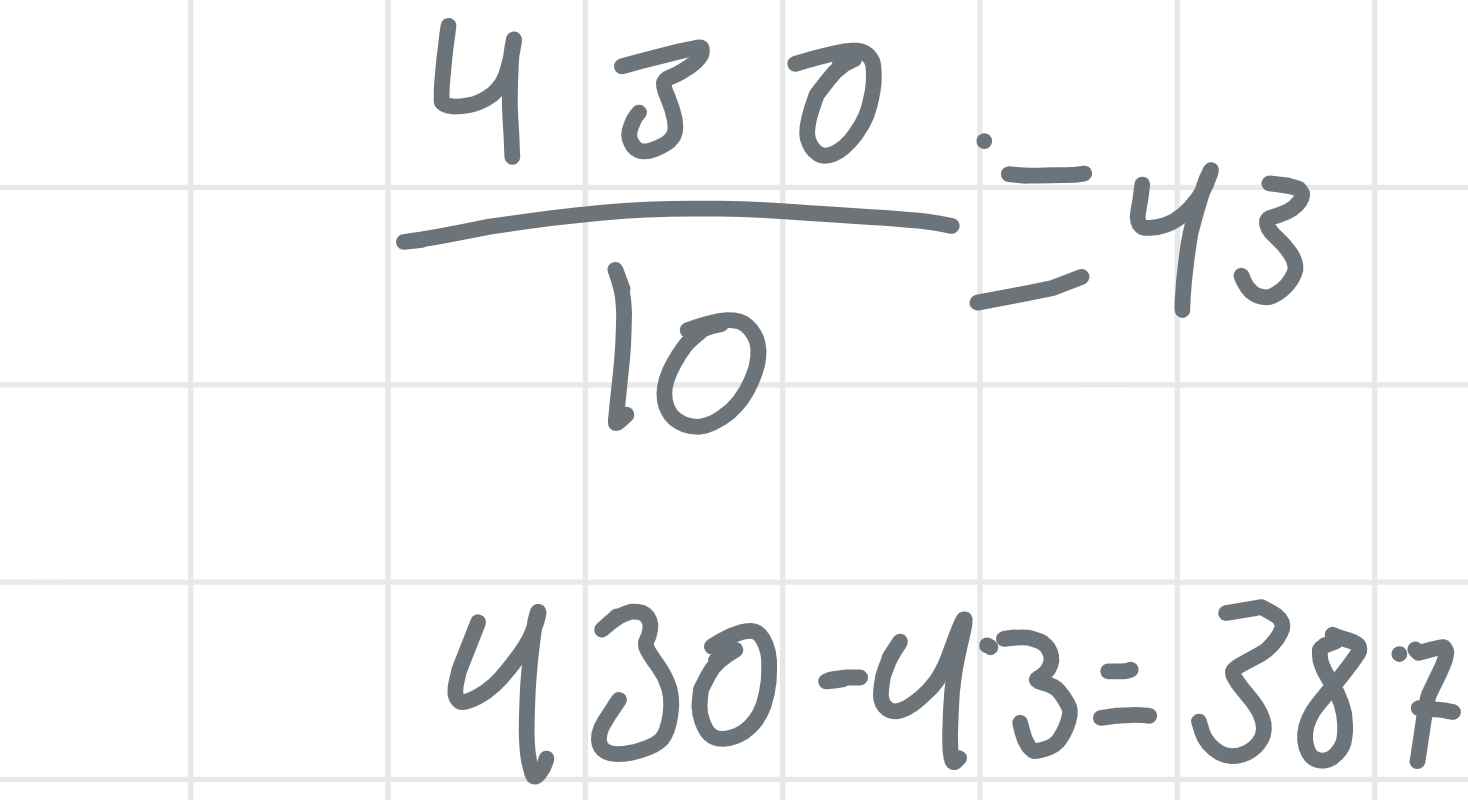 430
10
=43
430-43=387